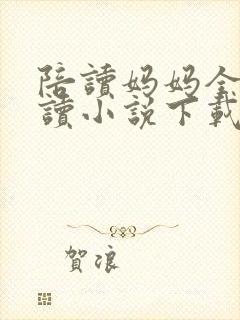 陪讀媽媽全
讀小説下載
賀浪